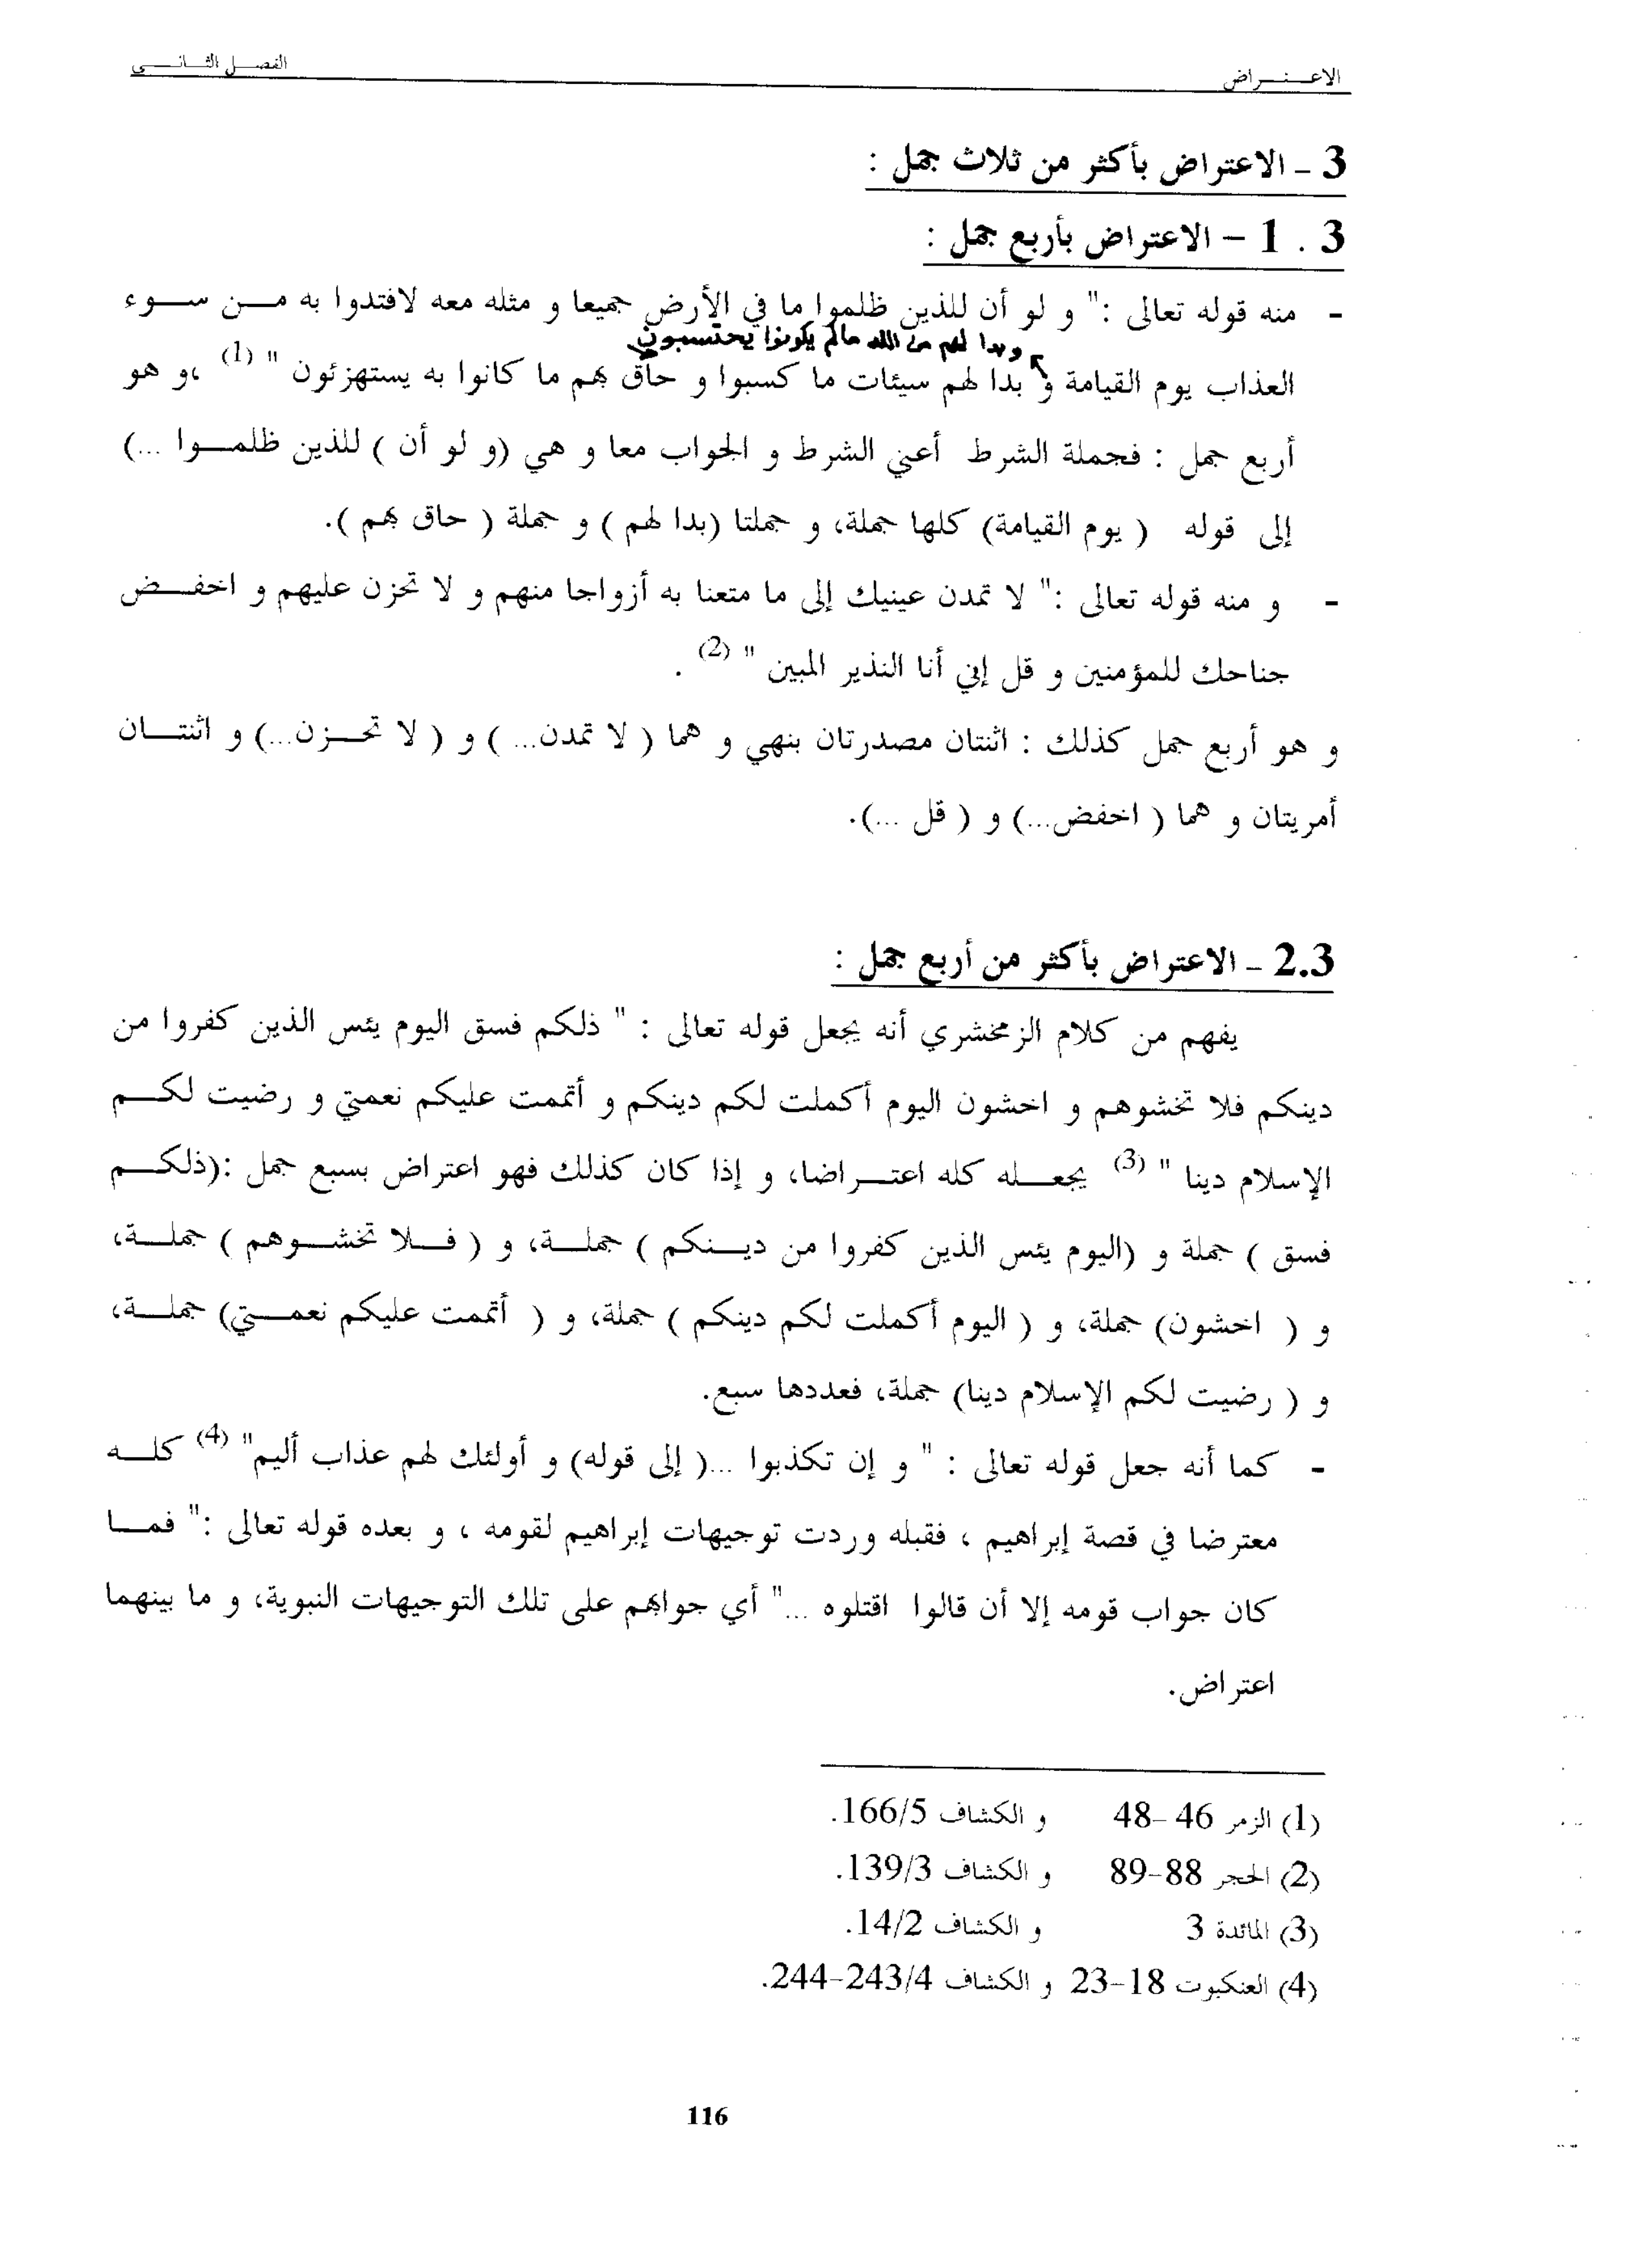 الاعتراض
الفصل الثاني
3 - الاعتراض بأكثر من ثلاث جمل :
3 . 1 - الاعتراض بأربع جمل :
- منه قوله تعالى :" و لو أن للذين ظلموا ما في الأرض جميعا و مثله معه لافتدوا به من سوء
وبدا لهم من الله مالم يكونوا يحتسبون
العذاب يوم القيامة و بدا لهم سيئات ما كسبوا و حاق بهم ما كانوا به يستهزئون " (1) ،و هو
أربع جمل : فجملة الشرط أعني الشرط و الجواب معا و هي (و لو أن ) للذين ظلموا ...)
إلى قوله ( يوم القيامة) كلها جملة، و جملتا (بدا لهم ) و جملة ( حاق بهم ).
- و منه قوله تعالى :" لا تمدن عينيك إلى ما متعنا به أزواجا منهم و لا تحزن عليهم و اخفض
جناحك للمؤمنين و قل إني أنا النذير المبين " (2) .
و هو أربع جمل كذلك : اثنتان مصدرتان بنهي و هما ( لا تمدن... ) و ( لا تحزن...) و اثنتان
أمريتان و هما ( اخفض...) و ( قل ...).
2.3 - الاعتراض بأكثر من أربع جمل :
يفهم من كلام الزمخشري أنه يجعل قوله تعالى : " ذلكم فسق اليوم يئس الذين كفروا من
دينكم فلا تخشوهم و اخشون اليوم أكملت لكم دينكم و أتممت عليكم نعمتي و رضيت لكم
الإسلام دينا " (3) يجعله كله اعتراضا، و إذا كان كذلك فهو اعتراض بسبع جمل :(ذلكم
فسق ) جملة و (اليوم يئس الذين كفروا من دينكم ) جملة، و ( فلا تخشوهم ) جملة،
و ( اخشون) جملة، و ( اليوم أكملت لكم دينكم ) جملة، و ( أتممت عليكم نعمتي) جملة،
و ( رضيت لكم الإسلام دينا) جملة، فعددها سبع.
- كما أنه جعل قوله تعالى : " و إن تكذبوا ...( إلى قوله) و أولئك لهم عذاب أليم" (4) كله
معترضا في قصة إبراهيم ، فقبله وردت توجيهات إبراهيم لقومه ، و بعده قوله تعالى :" فما
كان جواب قومه إلا أن قالوا اقتلوه ..." أي جوابهم على تلك التوجيهات النبوية، و ما بينهما
اعتراض.
(1) الزمر 46 -48 و الكشاف 166/5.
(2) الحجر 88-89 و الكشاف 139/3.
(3) المائدة 3 و الكشاف 14/2.
(4) العنكبوت 18-23 و الكشاف 243/4-244.
116